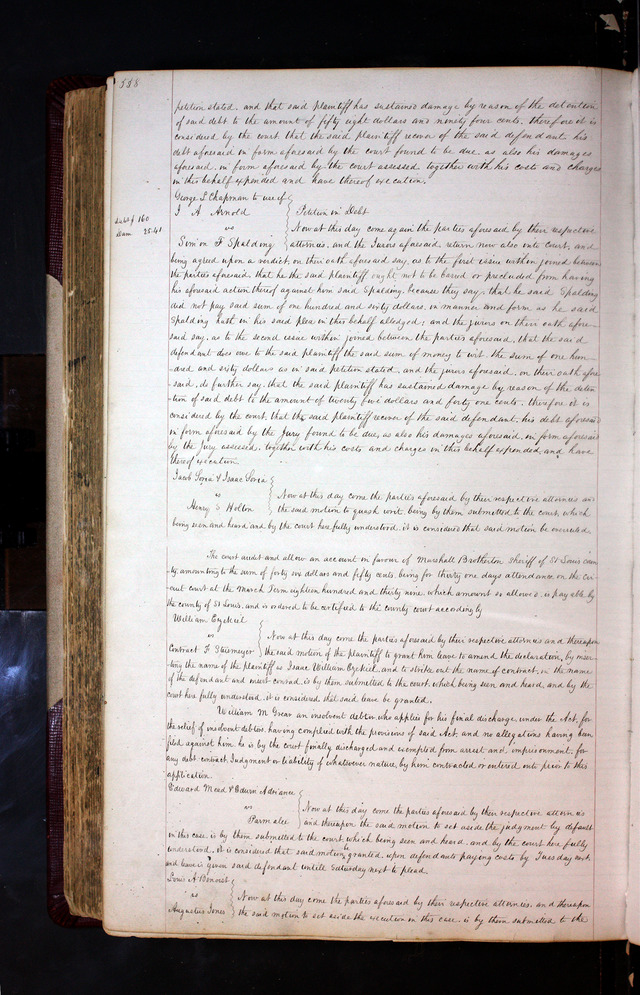 538
petition stated. and that said plaintiff has sustained damage by reason of the detention
of said debt to the amount of fifty eight dollars and ninety four cents. therefore it is
considered by the court that the said plaintiff recover of the said defendant his
debt aforesaid in form aforesaid by the court found to be due as also his damages
aforesaid, in form aforesaid by the court assessed together with his costs and charges
in this behalf expended and have thereof execution.
George L Chapman to use of
J A Arnold
Petition in Debt
Debt $ 160
Dam 25.41
vs
Now at this day come again the parties aforesaid by their respective
Simon F Spalding
attornies, and the Jurors aforesaid, return now also into court, and
being agreed upon a verdict, on their oath aforesaid say, as to the first issue within joined between
the parties aforesaid, that he the said plaintiff ought not to be barred or precluded from having
his aforesaid action thereof against him said Spalding, because they say, that he said Spalding
did not pay said sum of one hundred and sixty dollars, in manner and form as he said
Spalding hath in his said plea in this behalf alledged; and the jurors on their oath afore-
said say, as to the second issue within joined between the parties aforesaid, that the said
defendant does owe to the said plaintiff the said sum of money to wit the sum of one hun-
-dred and sixty dollars as in said petition stated, and the jurors aforesaid, on their oath afore
-said, do further say that the said plaintiff has sustained damage by reason of the deten
-tion of said debt to the amount of twenty five dollars and forty one cents. therefore it is
considered by the court, that the said plaintiff recover of the said defendant, his debt aforesaid
in form aforesaid by the Jury found to be due, as also his damages aforesaid, in form aforesaid
by the jury assessed, together with his costs and charges in this behalf expended, and have
thereof execution
Jacob &amp; Isaac
vs
Now at this day come the parties aforesaid by their respective attornies and
Henry S Holton
the said motion to quash writ being by them submitted to the court, which
being seen and heard and by the court here fully understood it is considered that said motion be overruled.
The court audit and allow an account in favour of Marshall Brotherton sheriff of St Louis coun
-ty, amounting to the sum of forty six dollars and fifty cents, being for thirty one days attendance on the Cir-
-cuit court at the March Term eighteen hundred and thirty nine. which amount so allowed, is payable by
the county of St Louis, and is ordered to be certified to the county court accordingly
William Ezekiel
vs
Now at this day come the parties aforesaid by their respective attornies and thereupon
Contract F
the said motion of the plaintiff to grant him leave to amend the declaration, by inser
-ting the name of the plaintiff as Isaac William Ezekiel, and to strike out the name of contract, in the name
of the defendant and insert conrad, is by them submitted to the court, which being seen and heard, and by the
court here fully understood, it is considered that said leave be granted.
William M Grear an insolvent debtor who applies for his final discharge, under the Act, for
the relief of insolvent debtors, having complied with the provisions of said Act, and no allegations having been
filed against him he is by the court finally discharged and exempted from arrest and imprisonment, for
any debt, contract, Judgment or liability of whatsoever nature, by him contracted or entered into prior to this
application.
Edward Mead &amp; Edwin Adriance
vs
Now at this day come the parties aforesaid by their respective attornies
Parmalee
and thereupon the said motion to set aside the judgment by default
in this case is by them submitted to the court, which being seen and heard, and by the court here fully
understood, it is considered that said motion be granted, upon defendants paying costs by Tuesday next
and leave is given said defendant untill Saturday next to plead.
Louis A Benoist
vs
Now at this day come the parties aforesaid by their respective attornies, and thereupon
Augustus Jones
the said motion to set aside the execution in this case is by them submitted to the